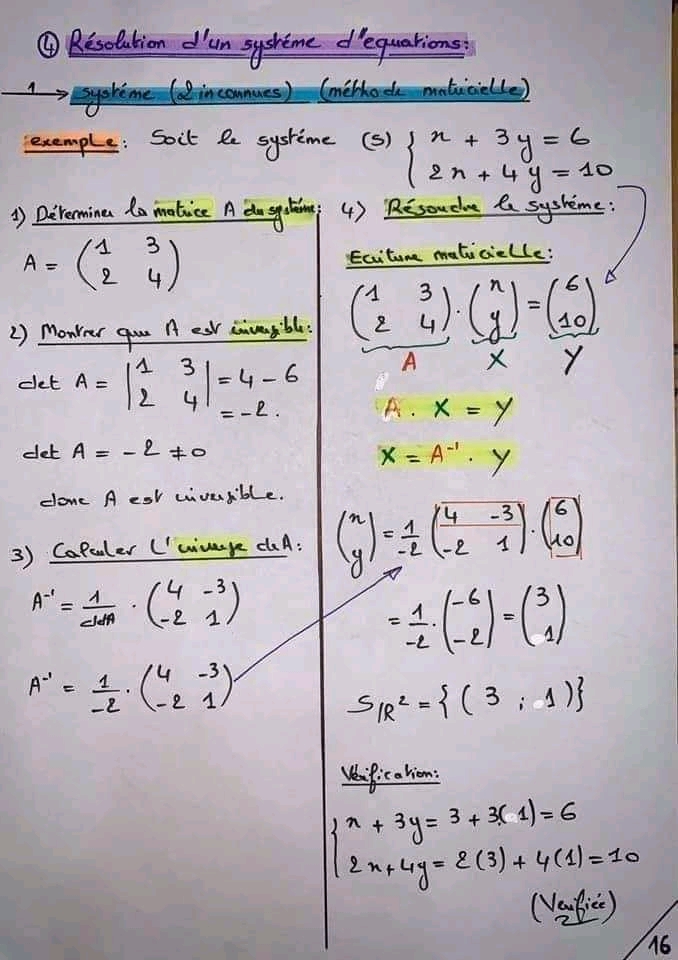 ④ Résolution d'un systéme d'equations:
1 → systéme (2 inconnues) (méthode matricielle)
exemple: Soit le systéme (S) { x + 3y = 6
2x + 4y = 10
1) Déterminer la matrice A du systéme:
A = (1 3
2 4)
2) Montrer que A est inversible:
det A = |1 3
2 4| = 4 - 6
= -2.
det A = -2 ≠ 0
donc A est inversible.
3) Calculer L'inverse de A:
A⁻¹ = 1/detA · (4 -3
-2 1)
A⁻¹ = 1/-2 · (4 -3
-2 1)
4) Résoudre le systéme:
Ecriture matricielle:
(1 3
2 4) · (x
y) = (6
10)
A X Y
A · X = Y
X = A⁻¹ · Y
(x
y) = 1/-2 (4 -3
-2 1) · (6
10)
= 1/-2 · (-6
-2) = (3
1)
S/R² = { ( 3 ; 1 ) }
Vérification:
{ x + 3y = 3 + 3( 1) = 6
2x + 4y = 2(3) + 4(1) = 10
(Verifiée)
16